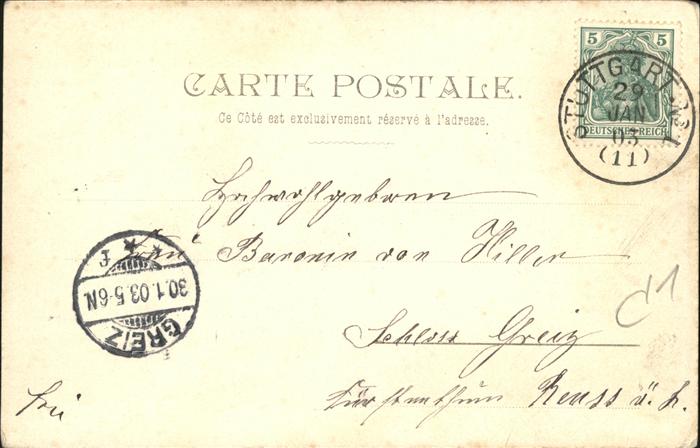 5 5
DEUTSCHES REICH
STUTTGART No 1
29
JAN
03
(11)
CARTE POSTALE.
Ce Côté est exclusivement réservé à l'adresse.
Hochwohlgeboren
Frau Baronin von Hiller
GREIZ
30.1.03.5-6N.
* * f
d1
Schloss Greiz
frei
Fürstenthum Reuss ä. L.